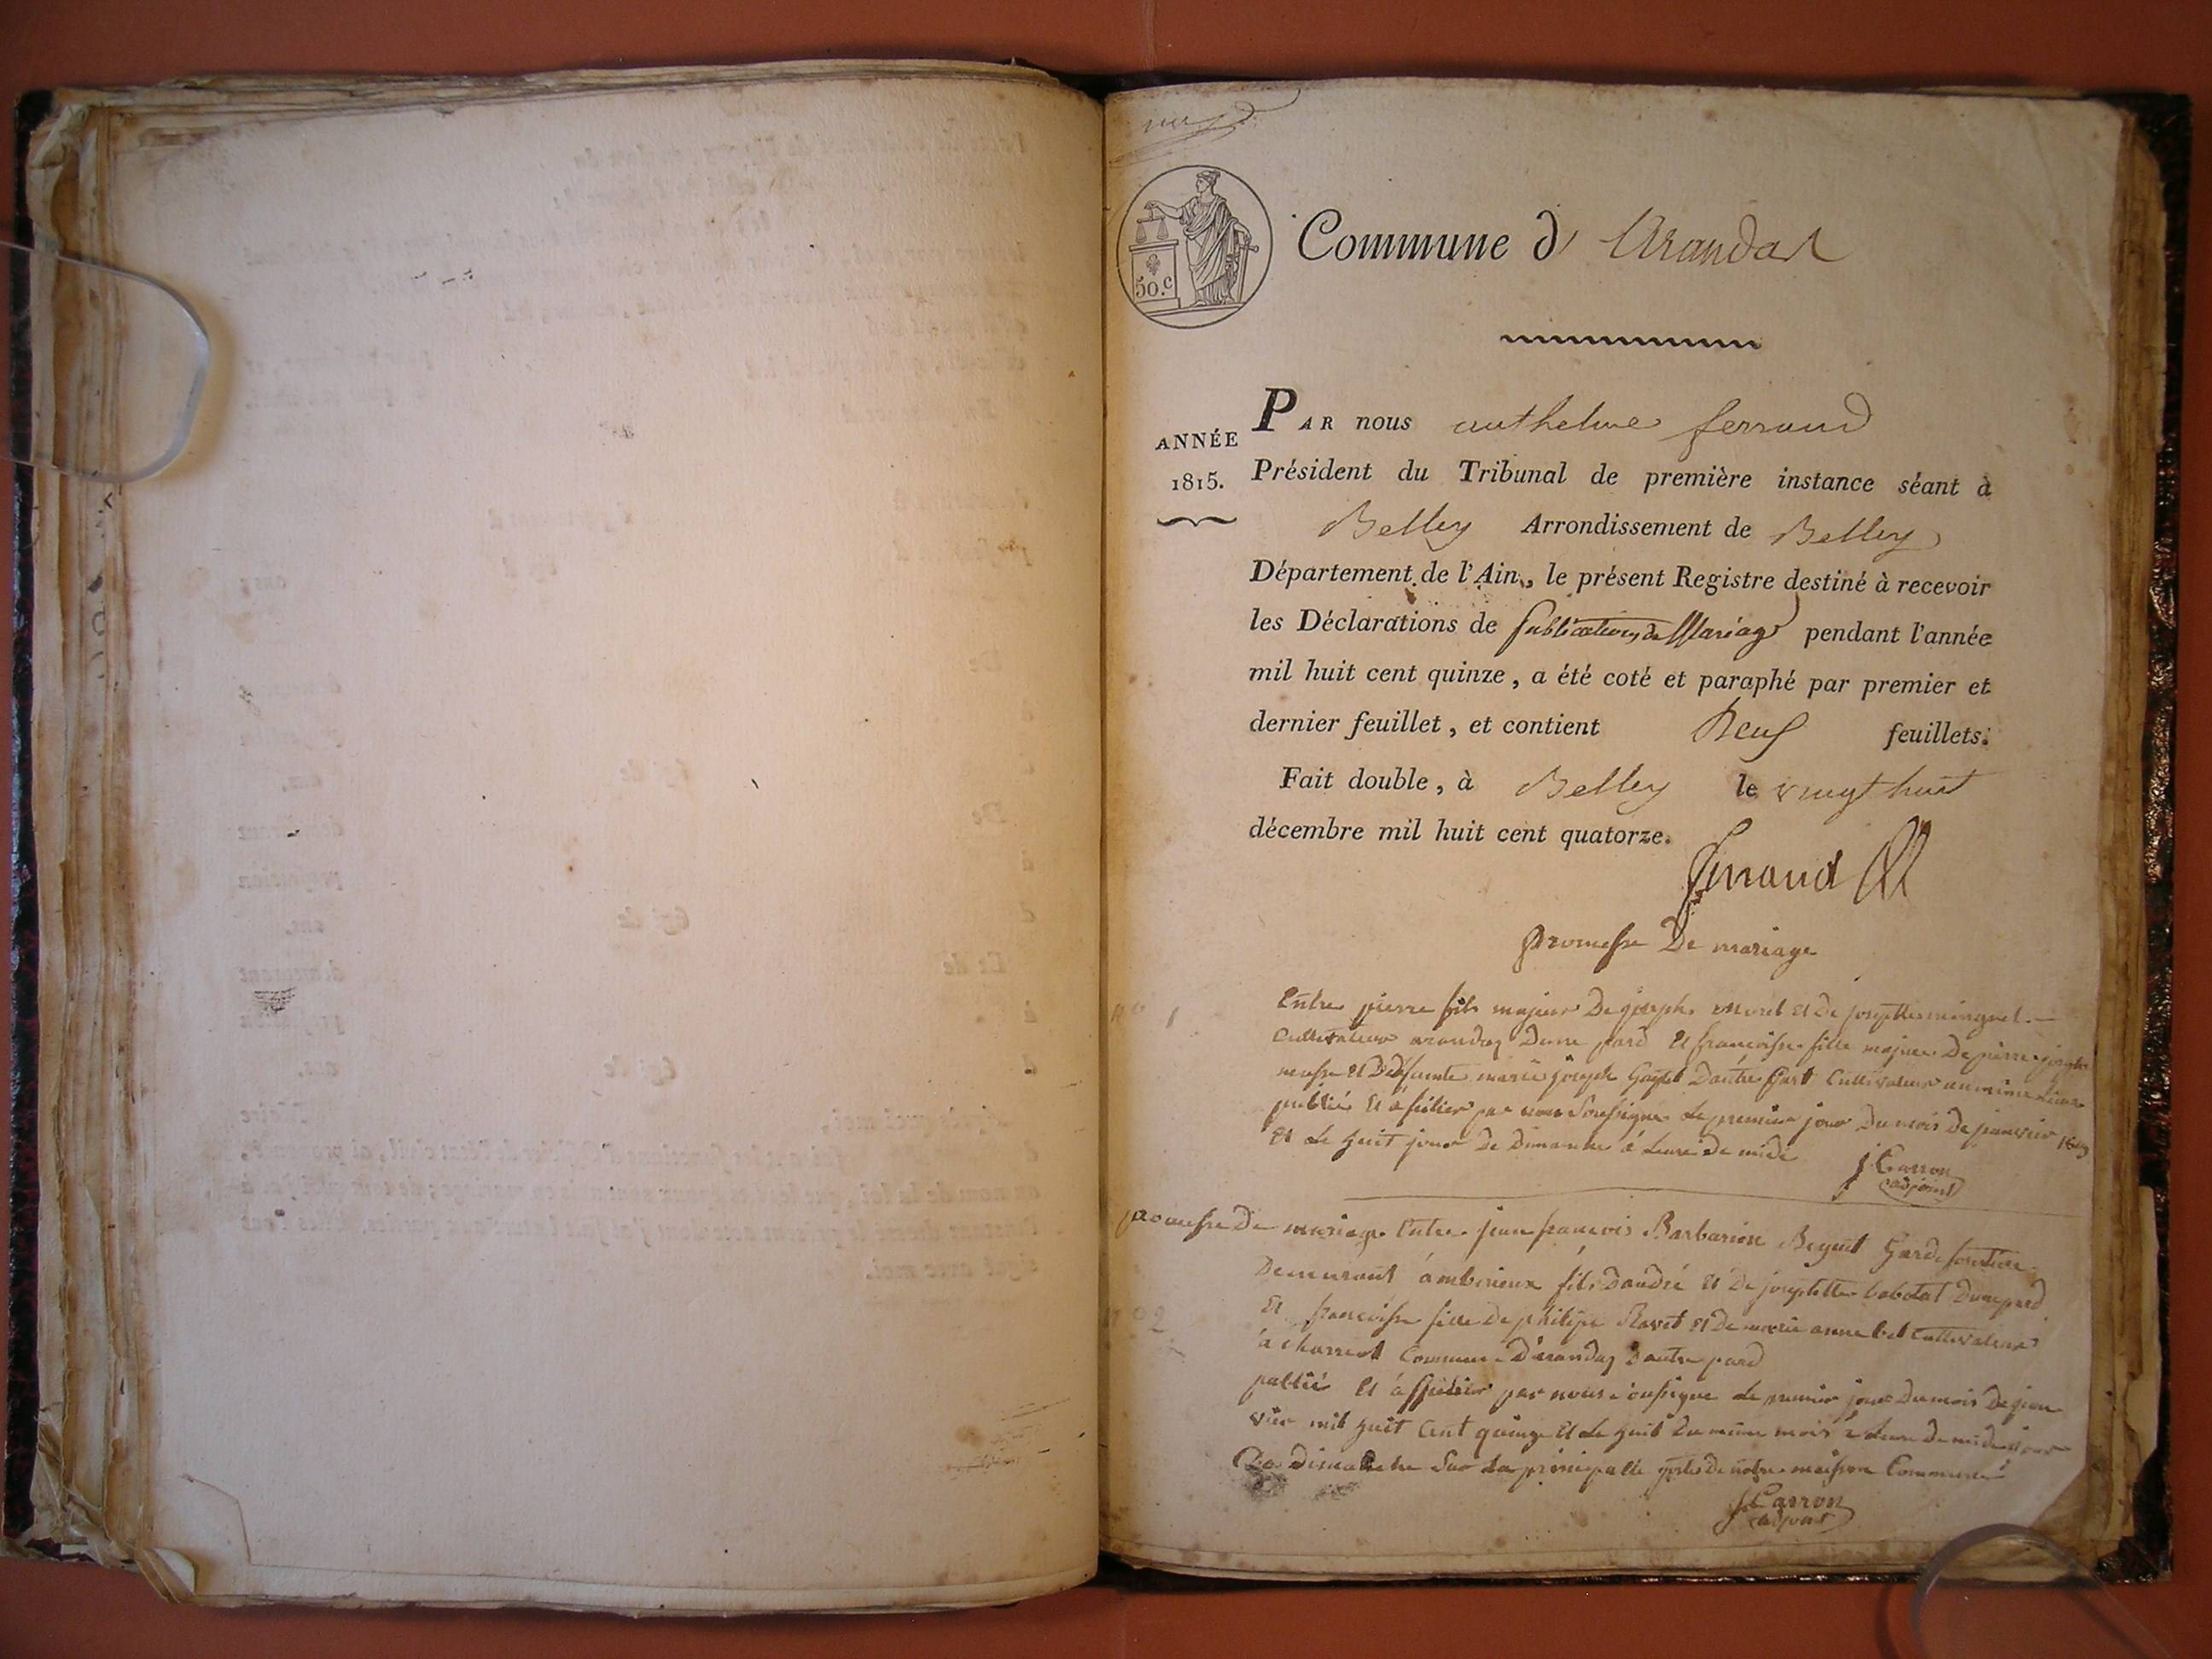 50.c
Commune d' Arandas
PAR nous anthelme ferrand
ANNÉE
1815.
Président du Tribunal de première instance séant à
Belley Arrondissement de Belley
Département de l'Ain, le présent Registre destiné à recevoir
les Déclarations de publications de Mariage pendant l'année
mil huit cent quinze, a été coté et paraphé par premier et
dernier feuillet, et contient Neuf feuillets.
Fait double, à Belley le vingt huit
décembre mil huit cent quatorze.
ferrand
promesse De mariage
no 1
Entre pierre fils majeur De joseph Morel Et De
Cultivateur arandas Dune pard Et francoise fille majeure De pierre joseph
Et Deffunte marie joseph Dautre part Cultivateur au même lieux
publié Et afficher par nous Soussigné Le premier jour Du mois De janvier 1815
Et Le huit jour De Dimanche à Leure De midi
J Carron
adjoint
promesse De mariage Entre jean francois Barbarin Garde forestier
Demeurant ambérieux fils Dandré Et De josephtte Dune pard
no 2
Et francoise fille De philipe Ravet Et De marie anne Cultivateur
à Commune Darandas Dautre pard
publié Et afficher par nous Soussigne Le premier jour Du mois De jan
vier mil huit Cent quinze Et Le huit Du même mois à Leure De midi jour
De Dimanche Sur La principalle porte De notre maison Commune
J Carron
adjoint